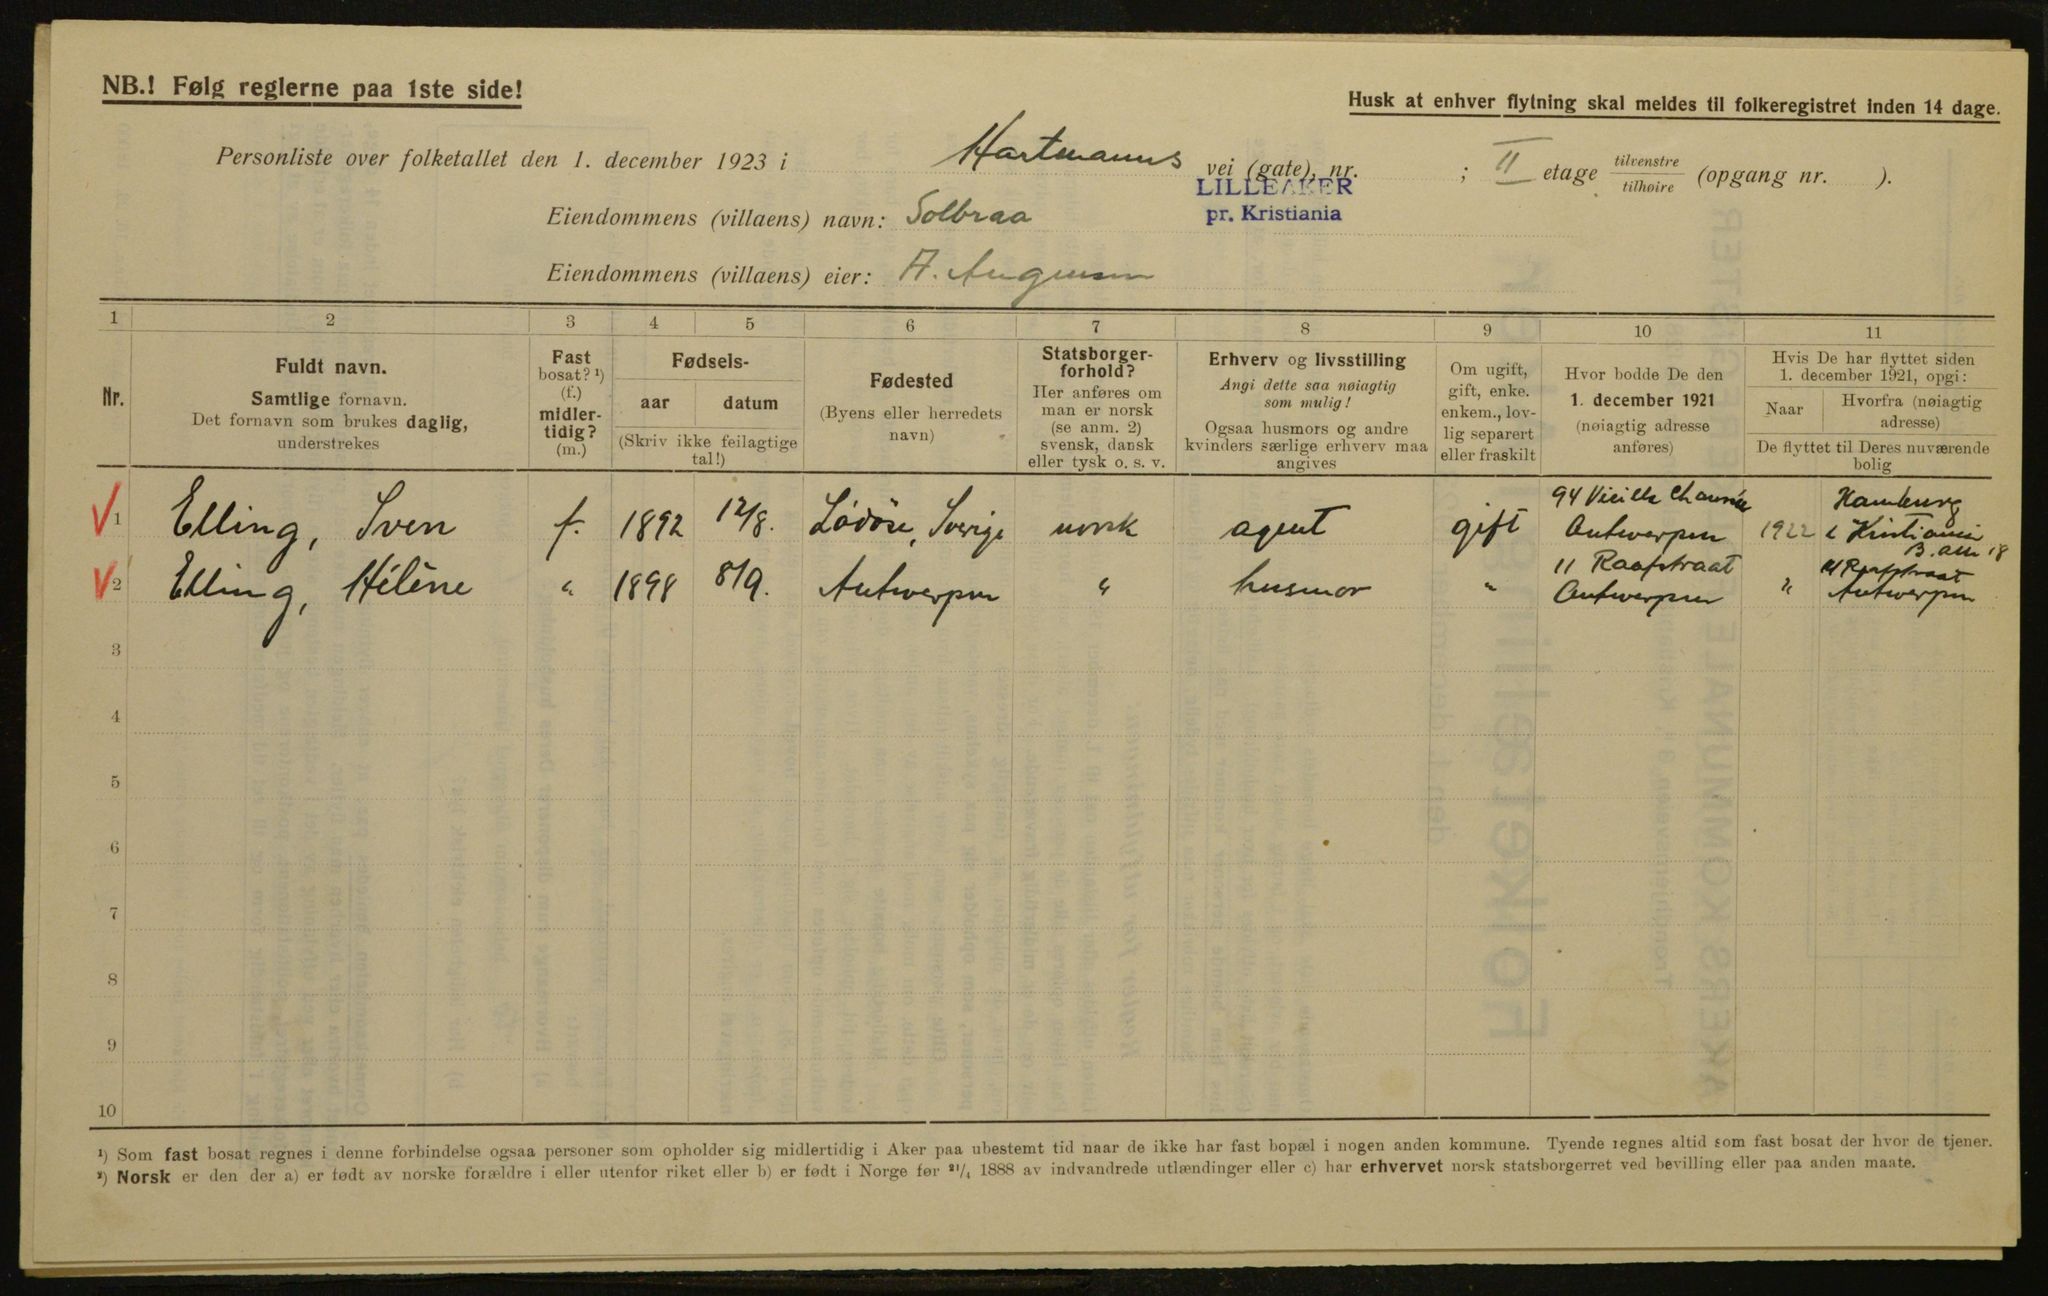 NB.! Følg reglerne paa 1ste side!
Husk at enhver flytning skal meldes til folkeregistret inden 14 dage.
Personliste over folketallet den 1. december 1923 i Hartmanns vei (gate), nr. ; II etage tilvenstre tilhøire (opgang nr. ).
LILLEAKER
pr. Kristiania
Eiendommens (villaens) navn: Solbraa
Eiendommens (villaens) eier: A.
1 2 3 4 5 6 7 8 9 10 11
Nr.
Fuldt navn.
Samtlige fornavn.
Det fornavn som brukes daglig,
understrekes
Fast
bosat? ¹)
(f.)
midler-
tidig?
(m.)
Fødsels-
aar datum
(Skriv ikke feilagtige
tal!)
Fødested
(Byens eller herredets
navn)
Statsborger-
forhold?
Her anføres om
man er norsk
(se anm. 2)
svensk, dansk
eller tysk o. s. v.
Erhverv og livsstilling
Angi dette saa nøiagtig
som mulig!
Ogsaa husmors og andre
kvinders særlige erhverv maa
angives
Om ugift,
gift, enke.
enkem., lov-
lig separert
eller fraskilt
Hvor bodde De den
1. december 1921
(nøiagtig adresse
anføres)
Hvis De har flyttet siden
1. december 1921, opgi:
Naar
Hvorfra (nøiagtig
adresse)
De flyttet til Deres nuværende
bolig
94 Vieille Hamburg
1 Elling, Sven f. 1892 12/8. Lödöse, Sverige norsk agent gift Antwerpen 1922 Kristiania
11 Raapstraat 11 Raapstraat
2 Elling, Hélène " 1898 8/9. Antwerpen " husmor " Antwerpen " Antwerpen
3
4
5
6
7
8
9
10
¹) Som fast bosat regnes i denne forbindelse ogsaa personer som opholder sig midlertidig i Aker paa ubestemt tid naar de ikke har fast bopæl i nogen anden kommune. Tyende regnes altid som fast bosat der hvor de tjener.
²) Norsk er den der a) er født av norske forældre i eller utenfor riket eller b) er født i Norge før ²¹/₄ 1888 av indvandrede utlændinger eller c) har erhvervet norsk statsborgerret ved bevilling eller paa anden maate.